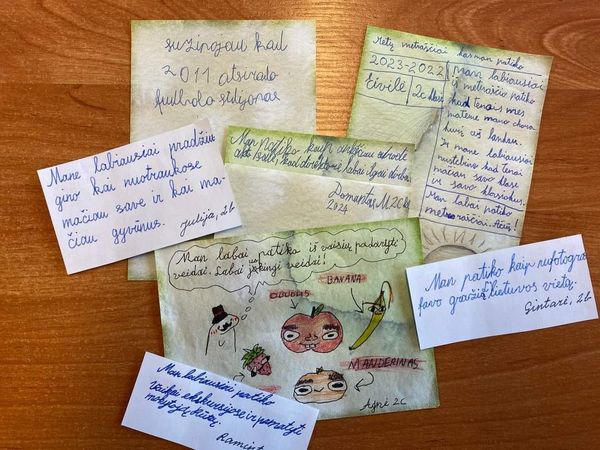 sužinojau kad
2011 atsirado
futbolo stadijonas
Metų metraščiai kas man patiko
2023-2022
2c klasė
Man labiausiai
iš metraščio patiko
kad tenais mes
matėme mano chorą
kurį aš lankau.
Ir mane labiausiai
nustebino kad tenai
mačiau savo klasę
ir savo klasiokus.
Man labai patiko
metraščiai. Ačiū!
Mane labiausiai pradžiu-
gino kai nuotraukose
mačiau save ir kai ma-
čiau gyvūnus.
Julija, 2b
Man patiko kaip
kad direktorė labai ilgai dirba.
Domantas M. 2c
2024
Man labai patiko iš vaisių padaryti
veidai. Labai juokingi veidai!
OBUOLIS
BANANA
MANDERINAS
Agnė 2C
Man patiko kaip nufotogra
favo gražią Lietuvos vietą.
Gintarė, 2b
Man labiausiai patiko
vaikai ekskursijose ir pamatyti
mokytoją